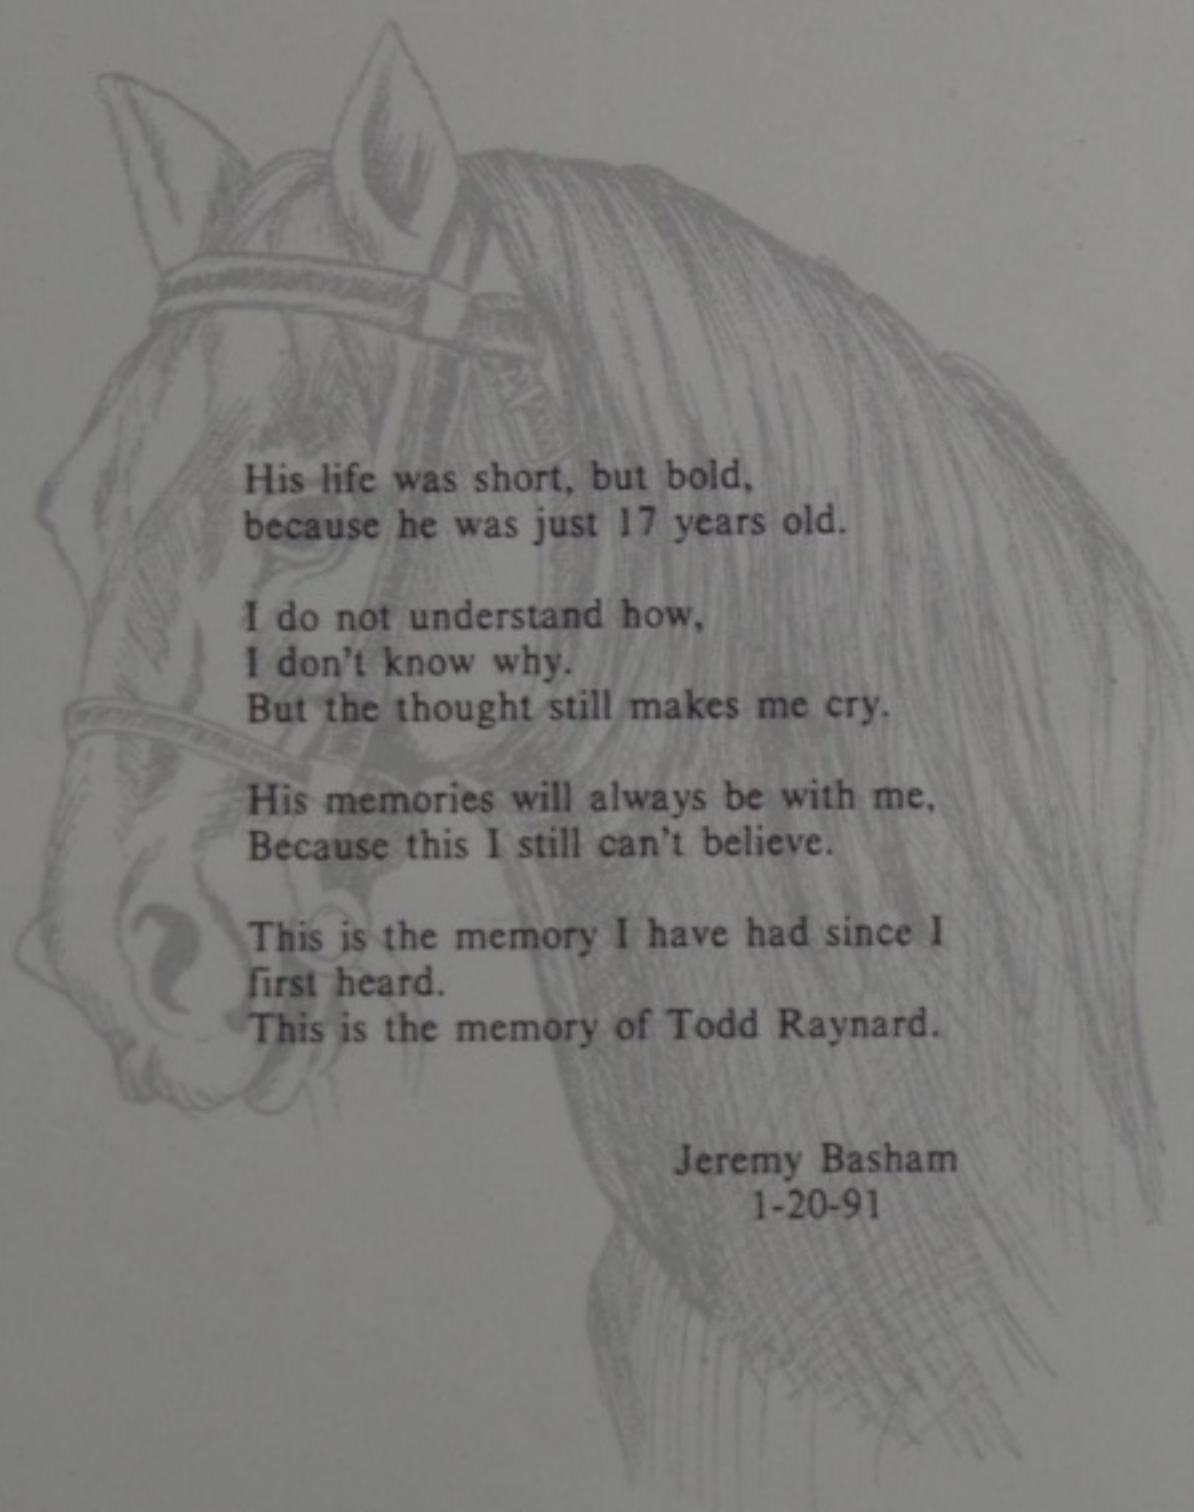 His life was short, but bold,
because he was just 17 years old.
I do not understand how,
I don't know why.
But the thought still makes me cry.
His memories will always be with me,
Because this I still can't believe.
This is the memory I have had since I
first heard.
This is the memory of Todd Raynard.
Jeremy Basham
1-20-91